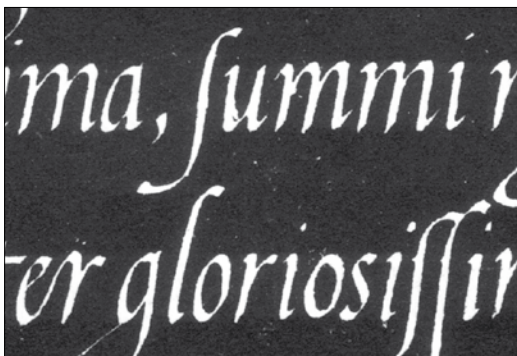 ima, ſummi
ter gloriosiſſi